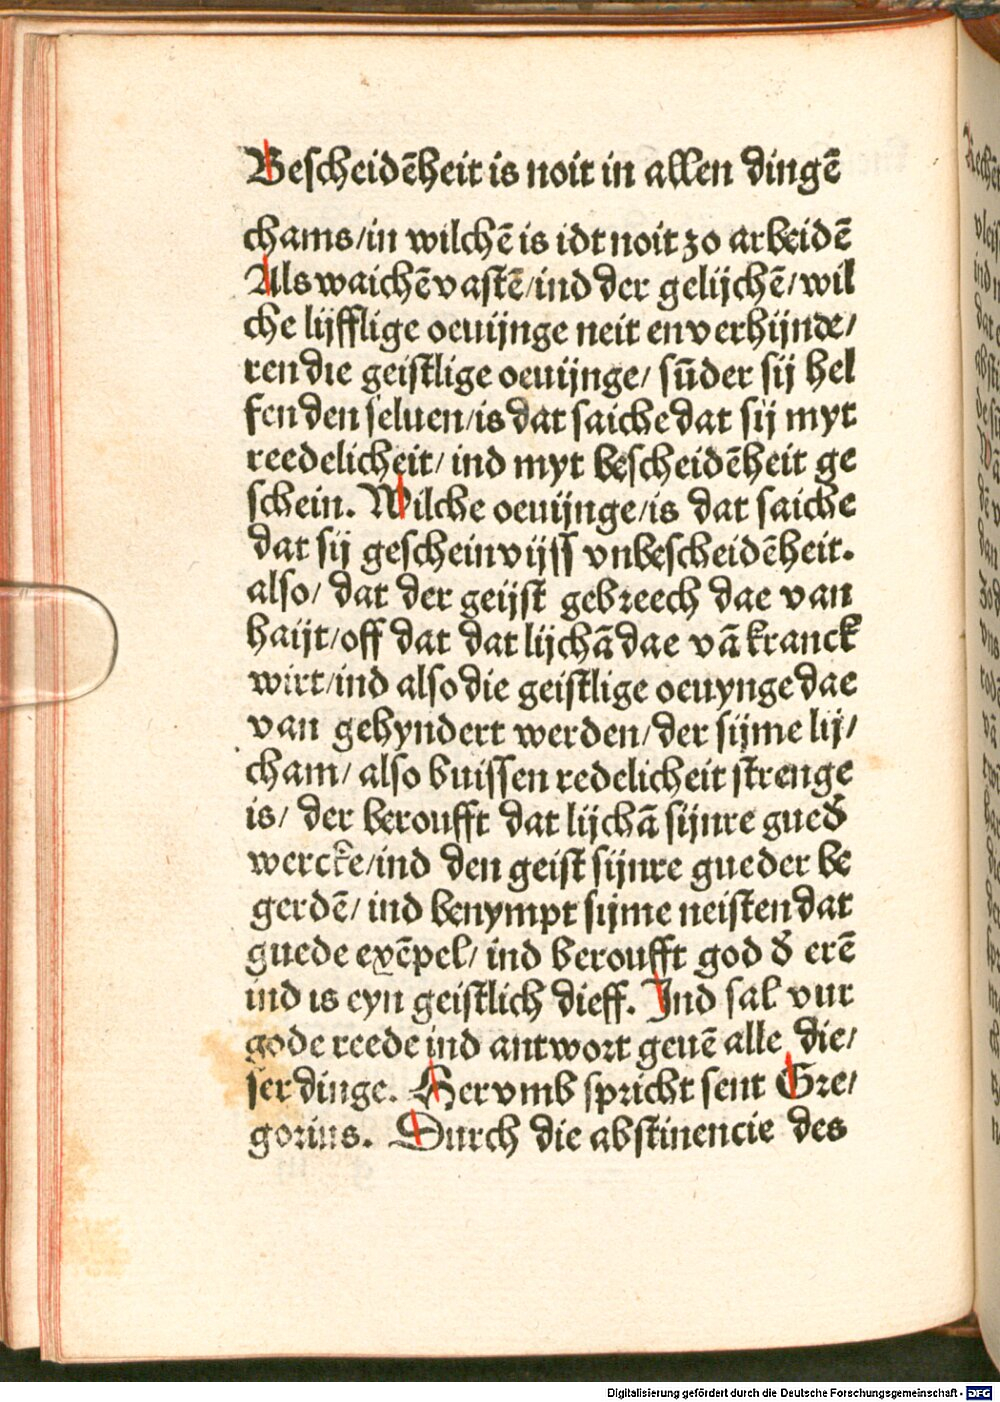 Bescheidēheit is noit in allen dingē
chams/in wilchē is idt noit zo arbeidē
Als waichē vastē/ind der gelijchē/wil
che lijfflige oeuijnge neit enverhijnde/
ren die geistlige oeuijnge/ sūder sij hel
fen den seluen/is dat saiche dat sij myt
reedelicheit/ ind myt bescheidēheit ge
schein. Wilche oeuijnge/is dat saiche
dat sij geschein vijss vnbescheidēheit.
also/ dat der geijst gebreech dae van
haijt/off dat dat lijchā dae vā kranck
wirt/ind also die geistlige oeuynge dae
van gehyndert werden/der sijme lij/
cham/ also buissen redelicheit strenge
is/ der beroufft dat lijchā sijnre gued̄
wercke/ind den geist sijnre gueder be
gerdē/ ind benympt sijme neisten dat
guede exēpel/ ind beroufft god d̄ erē
ind is eyn geistlich dieff. Ind sal vur
gode reede ind antwort geuē alle die/
ser dinge. Hervmb spricht sent Gre/
gorius. Durch die abstinencie des
Digitalisierung gefördert durch die Deutsche Forschungsgemeinschaft - DFG